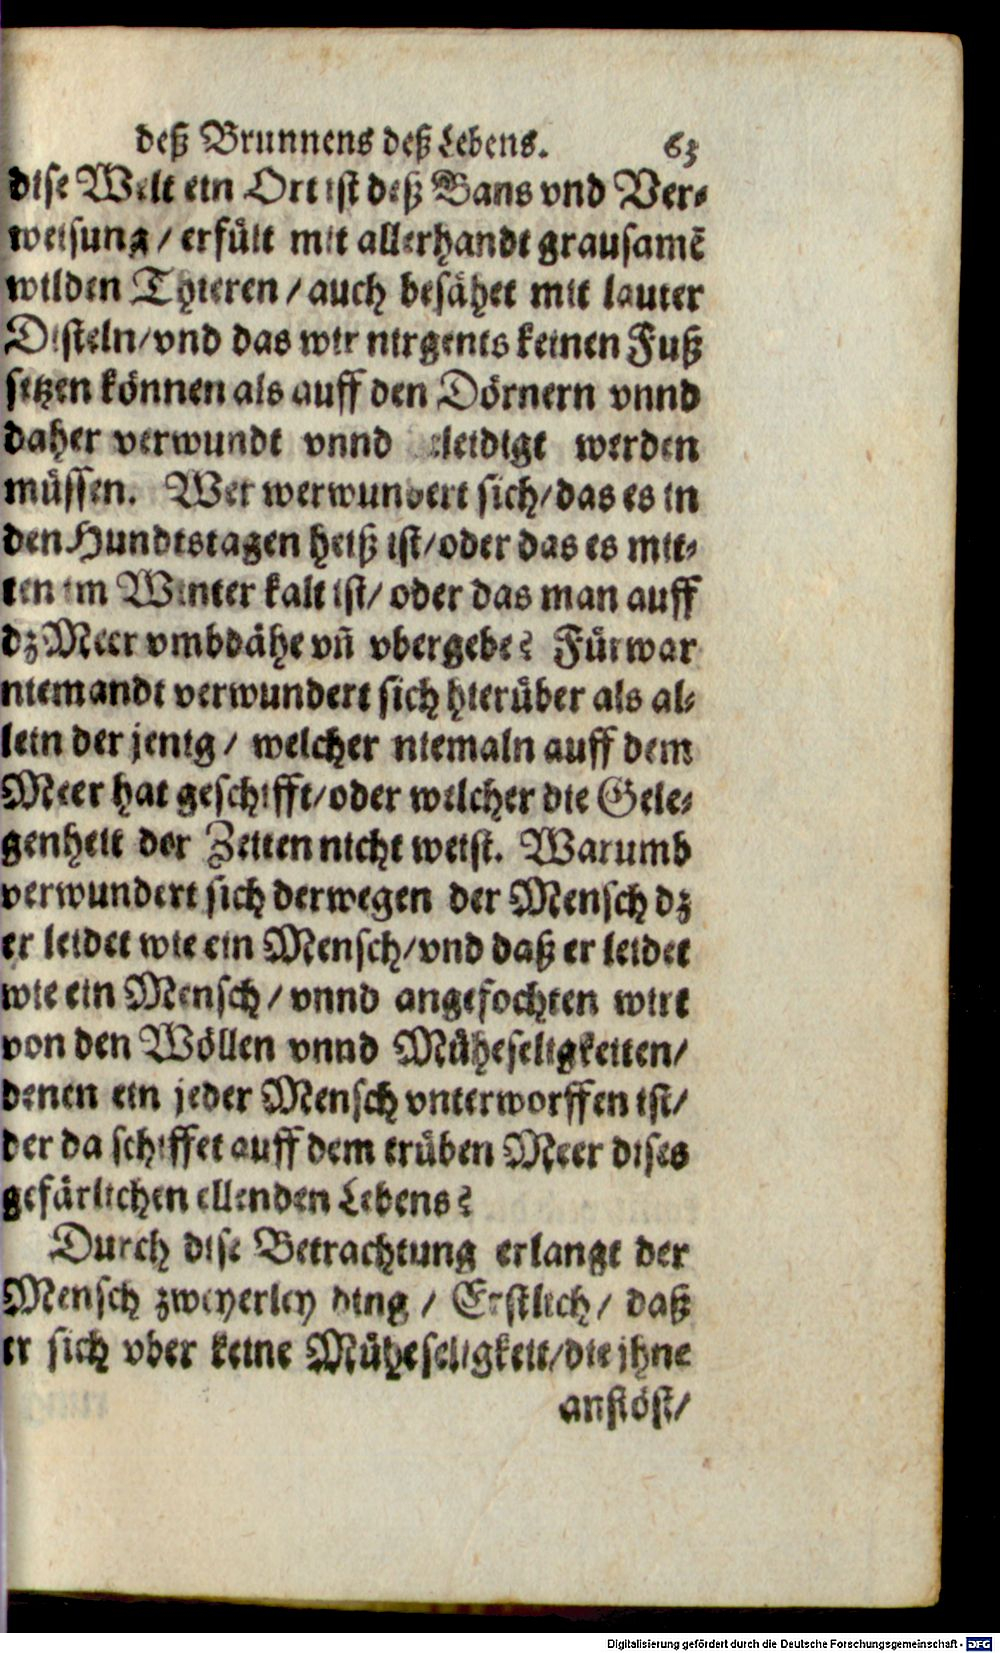 deß Brunnens deß Lebens. 63
dise Welt ein Ort ist deß Bans vnd Ver-
weisung / erfült mit allerhandt grausamẽ
wilden Thieren / auch besähet mit lauter
Disteln/vnd das wir nirgents keinen Fuß
setzen können als auff den Dörnern vnnd
daher verwundt vnnd werden
müssen. Wer werwundert sich/das es in
den Hundtstagen heiß ist/oder das es mit-
ten im Winter kalt ist/ oder das man auff
dz Meer vmbdähe vñ vbergebe? Fürwar
niemandt verwundert sich hierüber als al-
lein der jenig / welcher niemaln auff dem
Meer hat geschifft/oder welcher die Gele-
genheit der Zeiten nicht weist. Warumb
verwundert sich derwegen der Mensch dz
er leidet wie ein Mensch/vnd daß er leidet
wie ein Mensch / vnnd angefochten wirt
von den Wöllen vnnd Müheseligkeiten/
denen ein jeder Mensch vnterworffen ist/
der da schiffet auff dem trüben Meer dises
gefärlichen ellenden Lebens?
Durch dise Betrachtung erlangt der
Mensch zweyerley ding / Erstlich / daß
er sich vber keine Müheseligkeit/die jhne
anstöst/
Digitalisierung gefördert durch die Deutsche Forschungsgemeinschaft - DFG